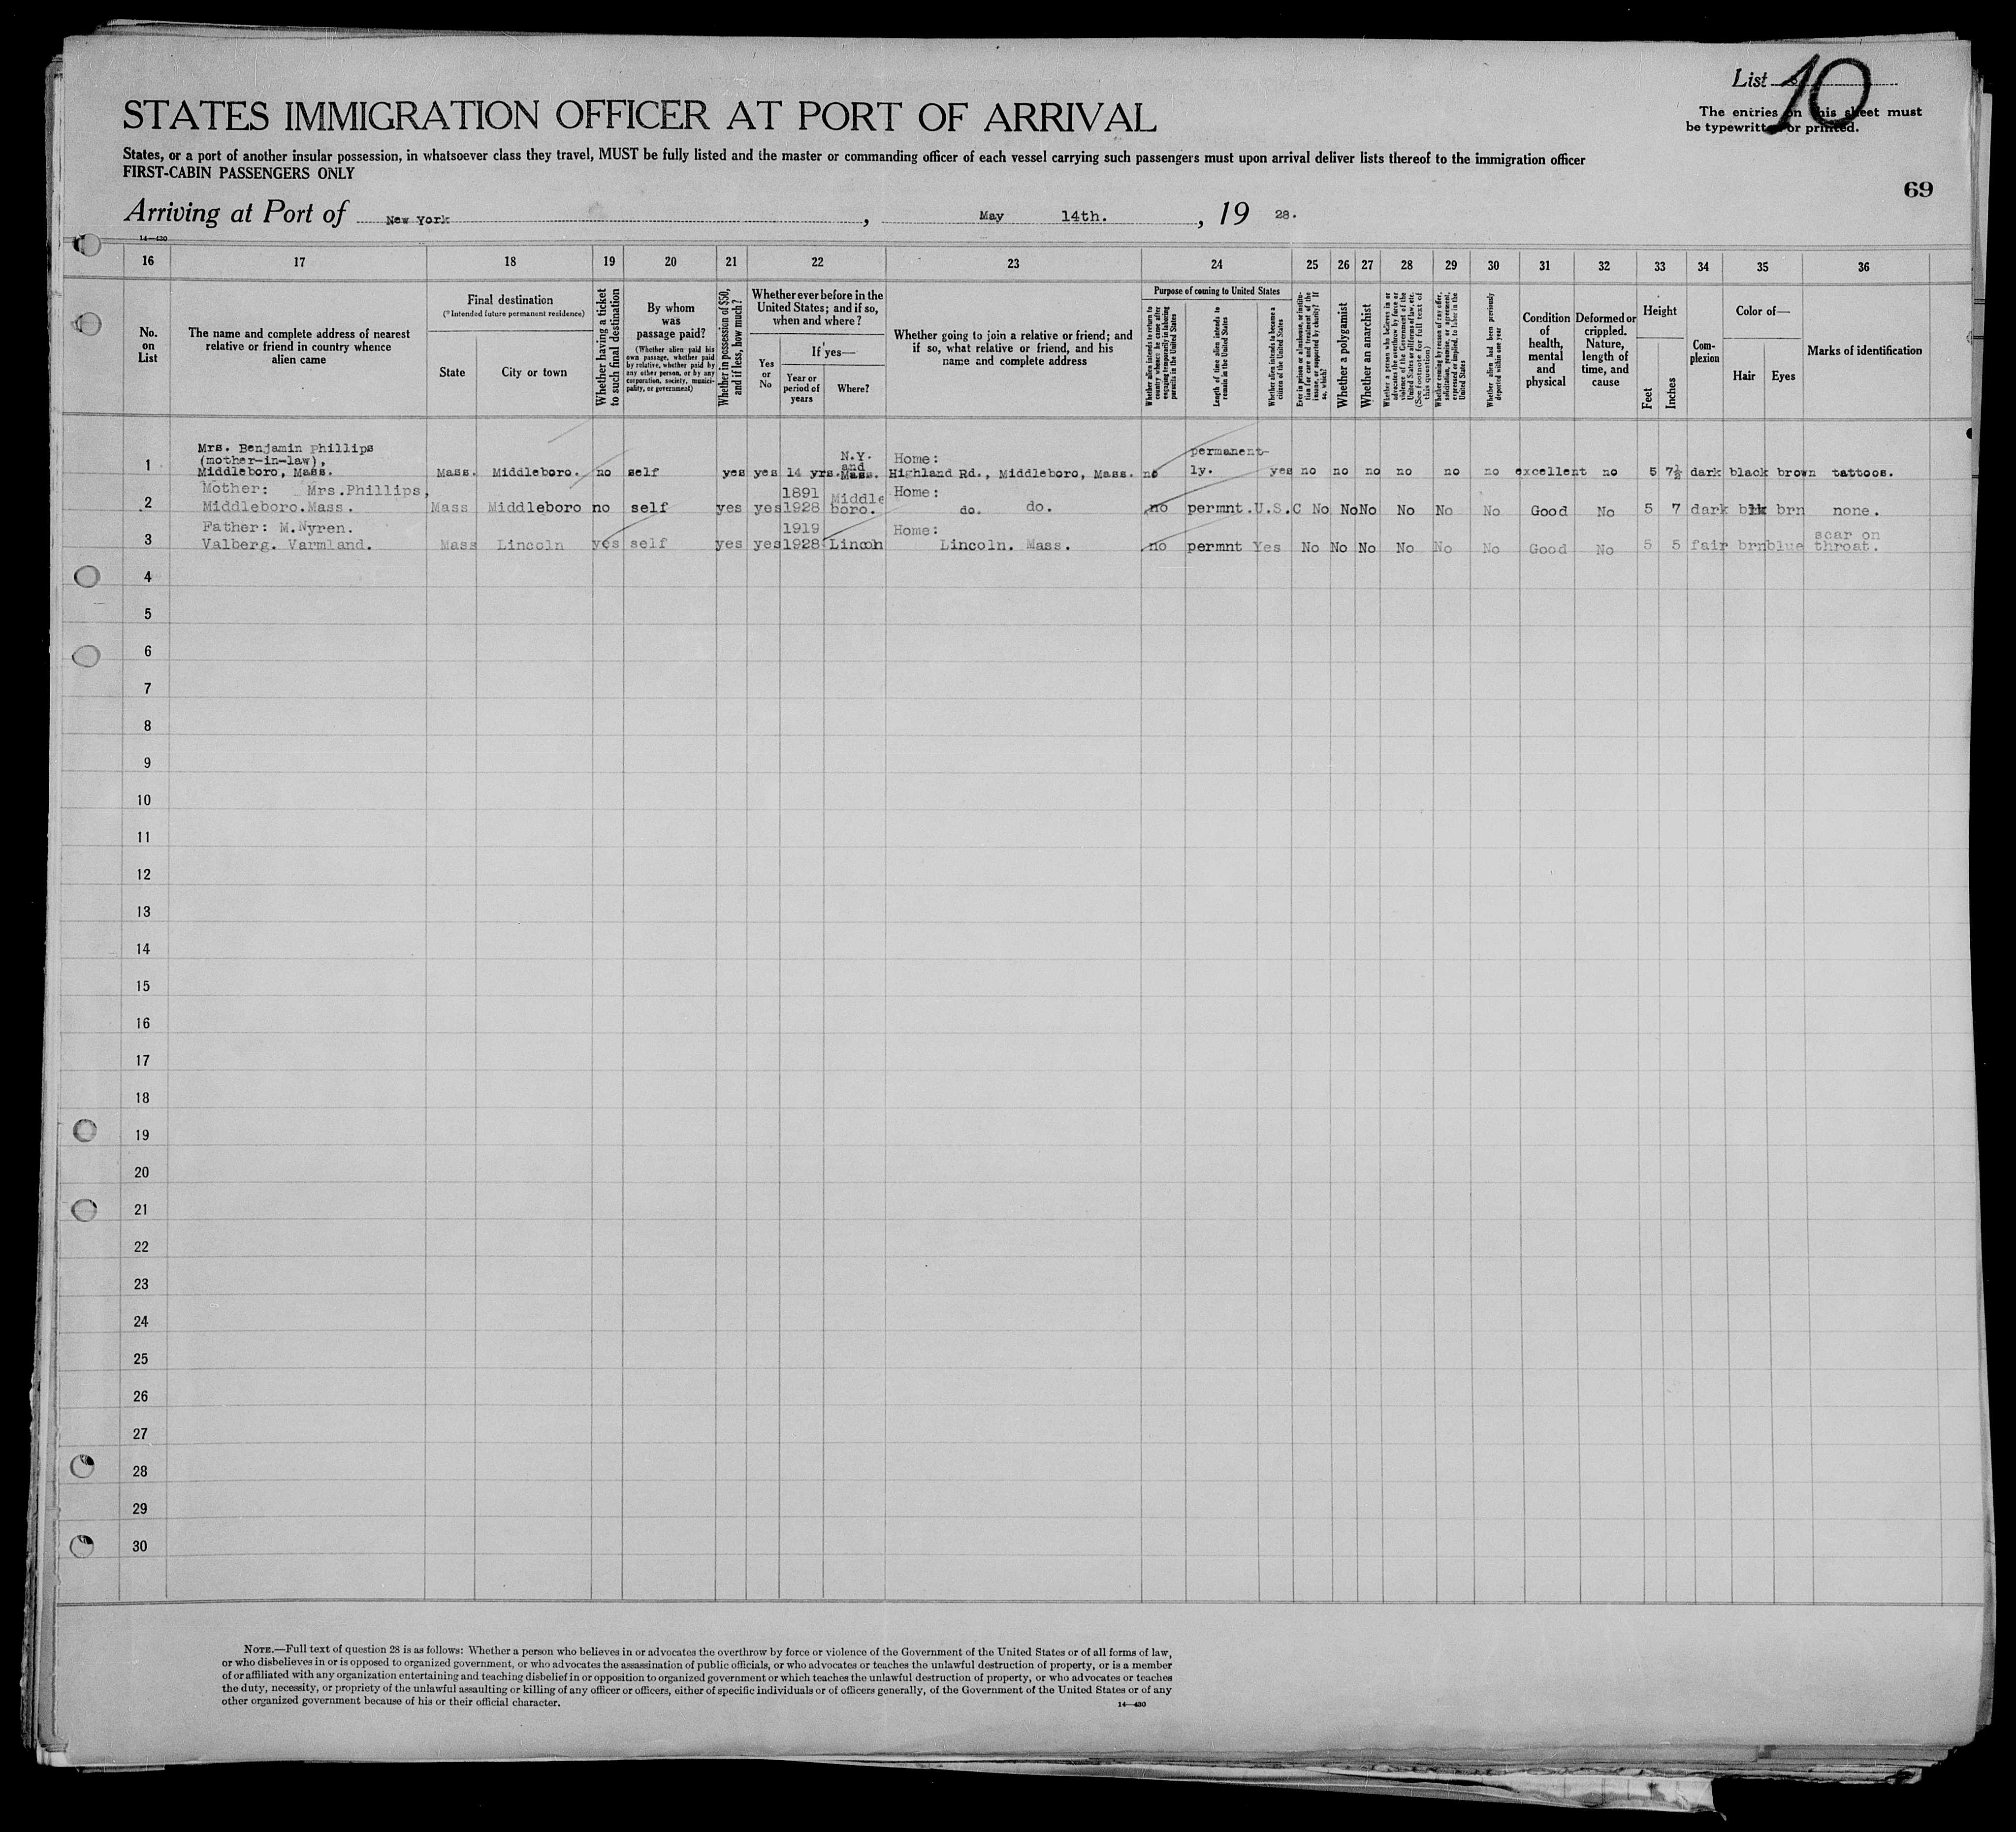 List 10
The entries on this sheet must
be typewritten or printed.
STATES IMMIGRATION OFFICER AT PORT OF ARRIVAL
States, or a port of another insular possession, in whatsoever class they travel, MUST be fully listed and the master or commanding officer of each vessel carrying such passengers must upon arrival deliver lists thereof to the immigration officer
FIRST-CABIN PASSENGERS ONLY
69
Arriving at Port of New York, May 14th., 19 28.
14—430
16 17 18 19 20 21 22 23 24 25 26 27 28 29 30 31 32 33 34 35 36
No.
on
List
The name and complete address of nearest
relative or friend in country whence
alien came
Final destination
(*Intended future permanent residence)
State
City or town
Whether having a ticket
to such final destination
By whom
was
passage paid?
(Whether alien paid his
own passage, whether paid
by relative, whether paid by
any other person, or by any
corporation, society, munici-
pality, or government)
Whether in possession of $50,
and if less, how much?
Whether ever before in the
United States; and if so,
when and where?
Yes
or
No
If yes—
Year or
period of
years
Where?
Whether going to join a relative or friend; and
if so, what relative or friend, and his
name and complete address
Purpose of coming to United States
Whether alien intends to return to
country whence he came after
engaging temporarily in laboring
pursuits in the United States
Length of time alien intends to
remain in the United States
Whether alien intends to become a
citizen of the United States
Ever in prison or almshouse, or institu-
tion for care and treatment of the
insane, or supported by charity? If
so, which?
Whether a polygamist
Whether an anarchist
Whether a person who believes in or
advocates the overthrow by force or
violence of the Government of the
United States or all forms of law, etc.
(See footnote for full text of
this question)
Whether coming by reason of any offer,
solicitation, promise, or agreement,
expressed or implied, to labor in the
United States
Whether alien had been previously
deported within one year
Condition
of
health,
mental
and
physical
Deformed or
crippled.
Nature,
length of
time, and
cause
Height
Feet
Inches
Com-
plexion
Color of—
Hair
Eyes
Marks of identification
Mrs. Benjamin Phillips
(mother-in-law),
1 Middleboro, Mass. Mass. Middleboro. no self yes yes 14 yrs. N.Y. and Mass. Home: Highland Rd., Middleboro, Mass. no permanent-ly. yes no no no no no no excellent no 5 7½ dark black brown tattoos.
Mother: Mrs.Phillips,
2 Middleboro.Mass. Mass Middleboro no self yes yes 1891 1928 Middle boro. Home: do. do. no permnt.U.S.C No No No No No No Good No 5 7 dark blk brn none.
Father: M.Nyren.
3 Valberg. Varmland. Mass Lincoln yes self yes yes 1919 1928 Lincoln Home: Lincoln. Mass. no permnt Yes No No No No No No Good No 5 5 fair brn blue scar on throat.
4
5
6
7
8
9
10
11
12
13
14
15
16
17
18
19
20
21
22
23
24
25
26
27
28
29
30
NOTE.—Full text of question 28 is as follows: Whether a person who believes in or advocates the overthrow by force or violence of the Government of the United States or of all forms of law,
or who disbelieves in or is opposed to organized government, or who advocates the assassination of public officials, or who advocates or teaches the unlawful destruction of property, or is a member
of or affiliated with any organization entertaining and teaching disbelief in or opposition to organized government or which teaches the unlawful destruction of property, or who advocates or teaches
the duty, necessity, or propriety of the unlawful assaulting or killing of any officer or officers, either of specific individuals or of officers generally, of the Government of the United States or of any
other organized government because of his or their official character.
14—430